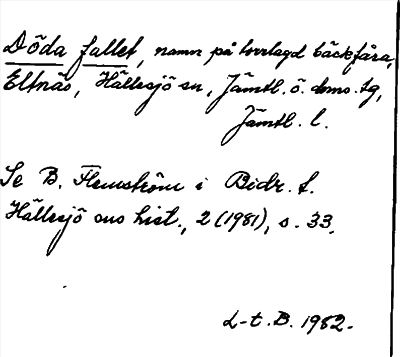 Döda fallet, namn på torrlagd bäckfåra,
Eltnäs, Hällesjö sn, Jämtl. ö. doms. tg,
Jämtl. l.
Se B. Flemström i Bidr. t.
Hällesjö sns hist., 2 (1981), s. 33.
L-t. B. 1982.